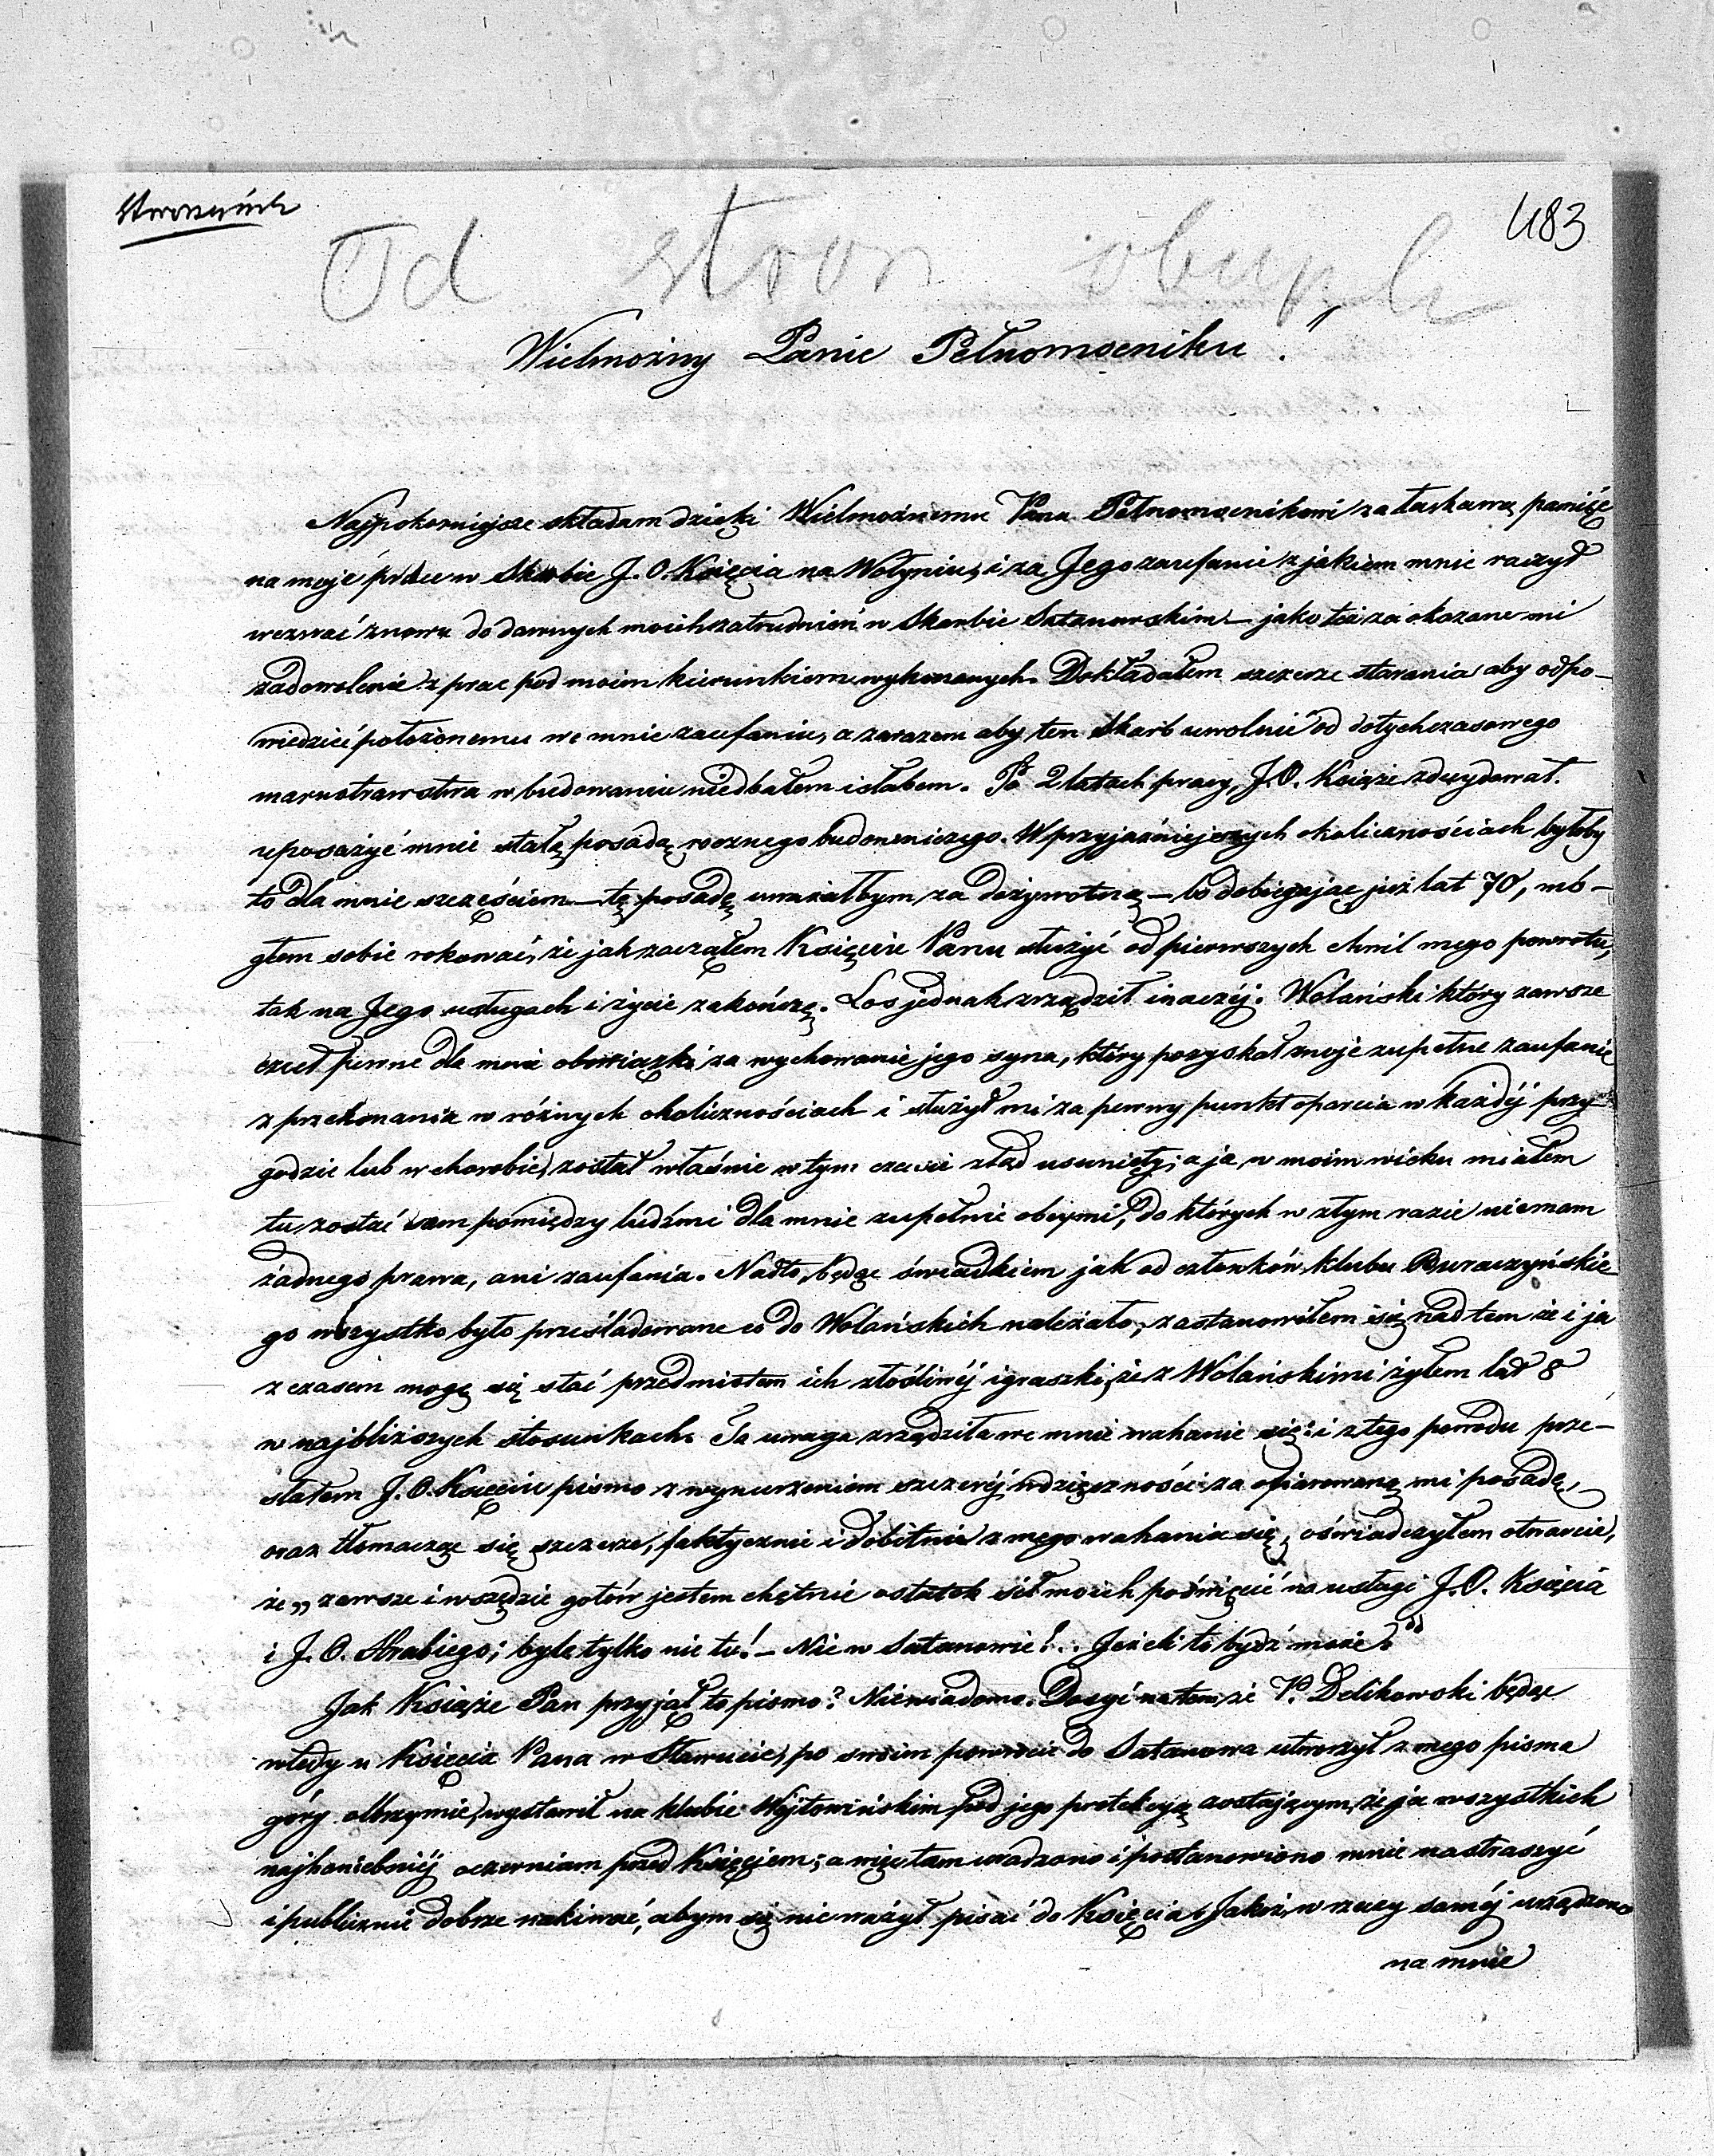 483
Od stron obcych
Wielmożny Panie Pełnomocniku!
Najpokorniejsze składam dzięki Wielmożnemu Panu Pełnomocnikowi za łaskawą pamięć
na moje prace w Skarbie J. O. Księcia na Wołyniu, i za Jego zaufanie z jakiem mnie raczył
wezwać znowu do dawnych moich zatrudnień w Skarbie Satanowskim – jako też za okazane mi
zadowolenie z prac pod moim kierunkiem wykonanych. Dokładałem szczerze starania aby odpo–
wiedzieć położonemu we mnie zaufaniu, a zarazem aby ten Skarb uwolnić od dotychczasowego
marnotrawstwa w budowaniu niedbałem i słabem. Po 2 latach pracy, J. O. Książe zdecydował
uposażyć mnie stałą posadą rocznego budowniczego. W przyjaźniejszych okolicznościach byłoby
to dla mnie szczęściem – tę posadę uważałbym za dożywotną – bo dobiegając już lat 70, mó–
głem sobie rokować, że jak zacząłem Księciu Panu służyć od pierwszych chwil mego powrotu,
tak na Jego usługach i życie zakończę. Los jednak zrządził inaczéj. Wolański który zawsze
czuł pewne dla mnie obowiązki za wychowanie jego syna, który pozyskał moje zupełne zaufanie
z przekonania w różnych okolicznościach i służył mi za pewny punkt oparcia w każdéj przy
godzie lub w chorobie, został właśnie w tym czasie ztąd usunięty; a ja w moim wieku miałem
tu zostać sam pomiędzy ludźmi dla mnie zupełnie obcymi, do których w złym razie niemam
żadnego prawa, ani zaufania. Nadto, będąc świadkiem jak od członków klubu Buraczyńskie
go wszystko było prześladowane co do Wolańskich należało, zastanowiłem się nad tem że i ja
z czasem mogę się stać przedmiotem ich złośliwéj igraszki, że z Wolańskimi żyłem lat 8
w najbliższych stosunkach. Ta uwaga zrządziła we mnie wahanie się: i z tego powodu prze–
słałem J. O. Księciu pismo z wynurzeniem szczeréj wdzięczności za ofiarowaną mi posadę,
oraz tłomacząc się szczerze, faktycznie i dobitnie z mego wahania się, oświadczyłem otwarcie,
że „zawsze i wszędzie gotów jestem chętnie ostatek sił moich poświęcić na usługi J. O. Księcia
i J. O. Hrabiego; byle tylko nie tu! – Nie w Satanowie!.. Jeżeli to bydź może."
Jak Książe Pan przyjął to pismo? Niewiadomo. Dosyć na tem, że P. Delikowski będąc
wtedy u Księcia Pana w Sławucie, po swoim powrocie do Satanowa utworzył z mego pisma
góry olbrzymie, wystawił na klubie Wójtowińskim pod jego protekcyą zostającym, że ja wszystkich
najhaniebniéj oczerniam przed Księciem; a więc tam uradzono i postanowiono mnie nastraszyć
i publicznie dobrze nakiwać, abym się nie ważył pisać do Księcia. Jakoż, w rzeczy saméj urządzono
na mnie